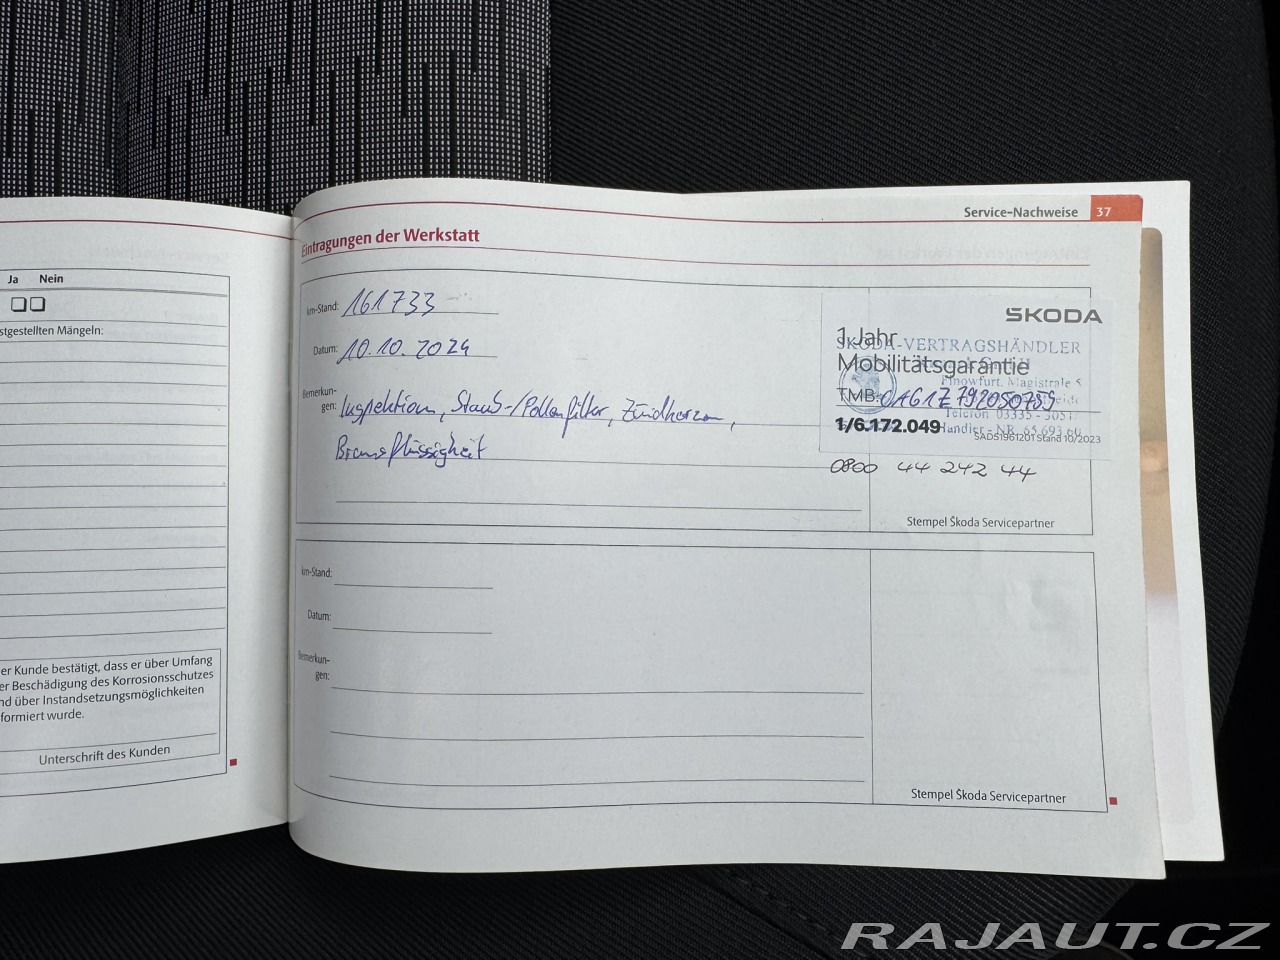 Ja Nein
stgestellten Mängeln:
er Kunde bestätigt, dass er über Umfang
er Beschädigung des Korrosionsschutzes
nd über Instandsetzungsmöglichkeiten
formiert wurde.
Unterschrift des Kunden
Service-Nachweise 37
Eintragungen der Werkstatt
km-Stand: 161733
Datum: 10.10.2024
Bemerkun-
gen: Inspektion, Staub-/Pollenfilter, Zündkerzen,
Bremsflüssigkeit
ŠKODA
1 Jahr
ŠKODA-VERTRAGSHÄNDLER
Mobilitätsgarantie
Finowfurt, Magistrale
TMB:
Telefon 03335
1/6.172.049
Händler-NR. 65 693
SAD51961201 Stand 10/2023
0800 44 242 44
Stempel Škoda Servicepartner
km-Stand:
Datum:
Bemerkun-
gen:
Stempel Škoda Servicepartner
RAJAUT.CZ